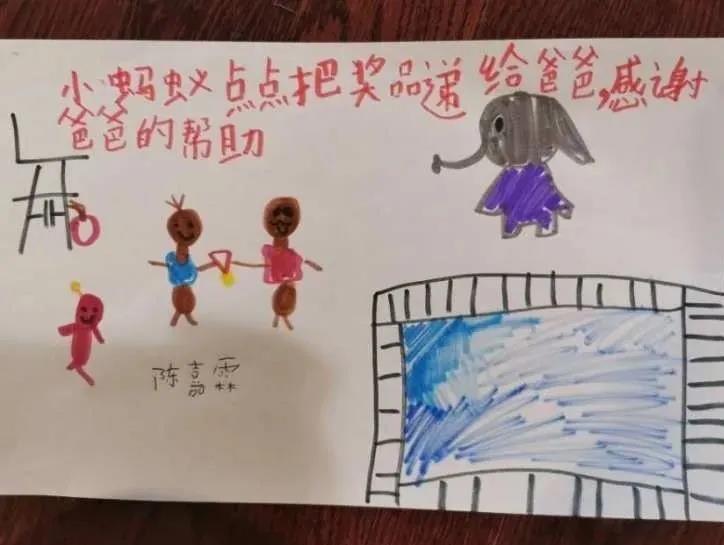 小蚂蚁点点把奖品递给爸爸,感谢
爸爸的帮助
陈嘉霖